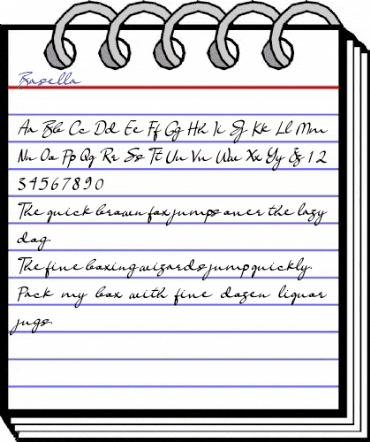 Rapella
Aa Bb Cc Dd Ee Ff Gg Hh Ii Jj Kk Ll Mm
Nn Oo Pp Qq Rr Ss Tt Uu Vv Ww Xx Yy Zz 1 2
3 4 5 6 7 8 9 0
The quick brown fox jumps over the lazy
dog
The fine boxing wizards jump quickly.
Pack my box with fine dozen liquor
jugs.